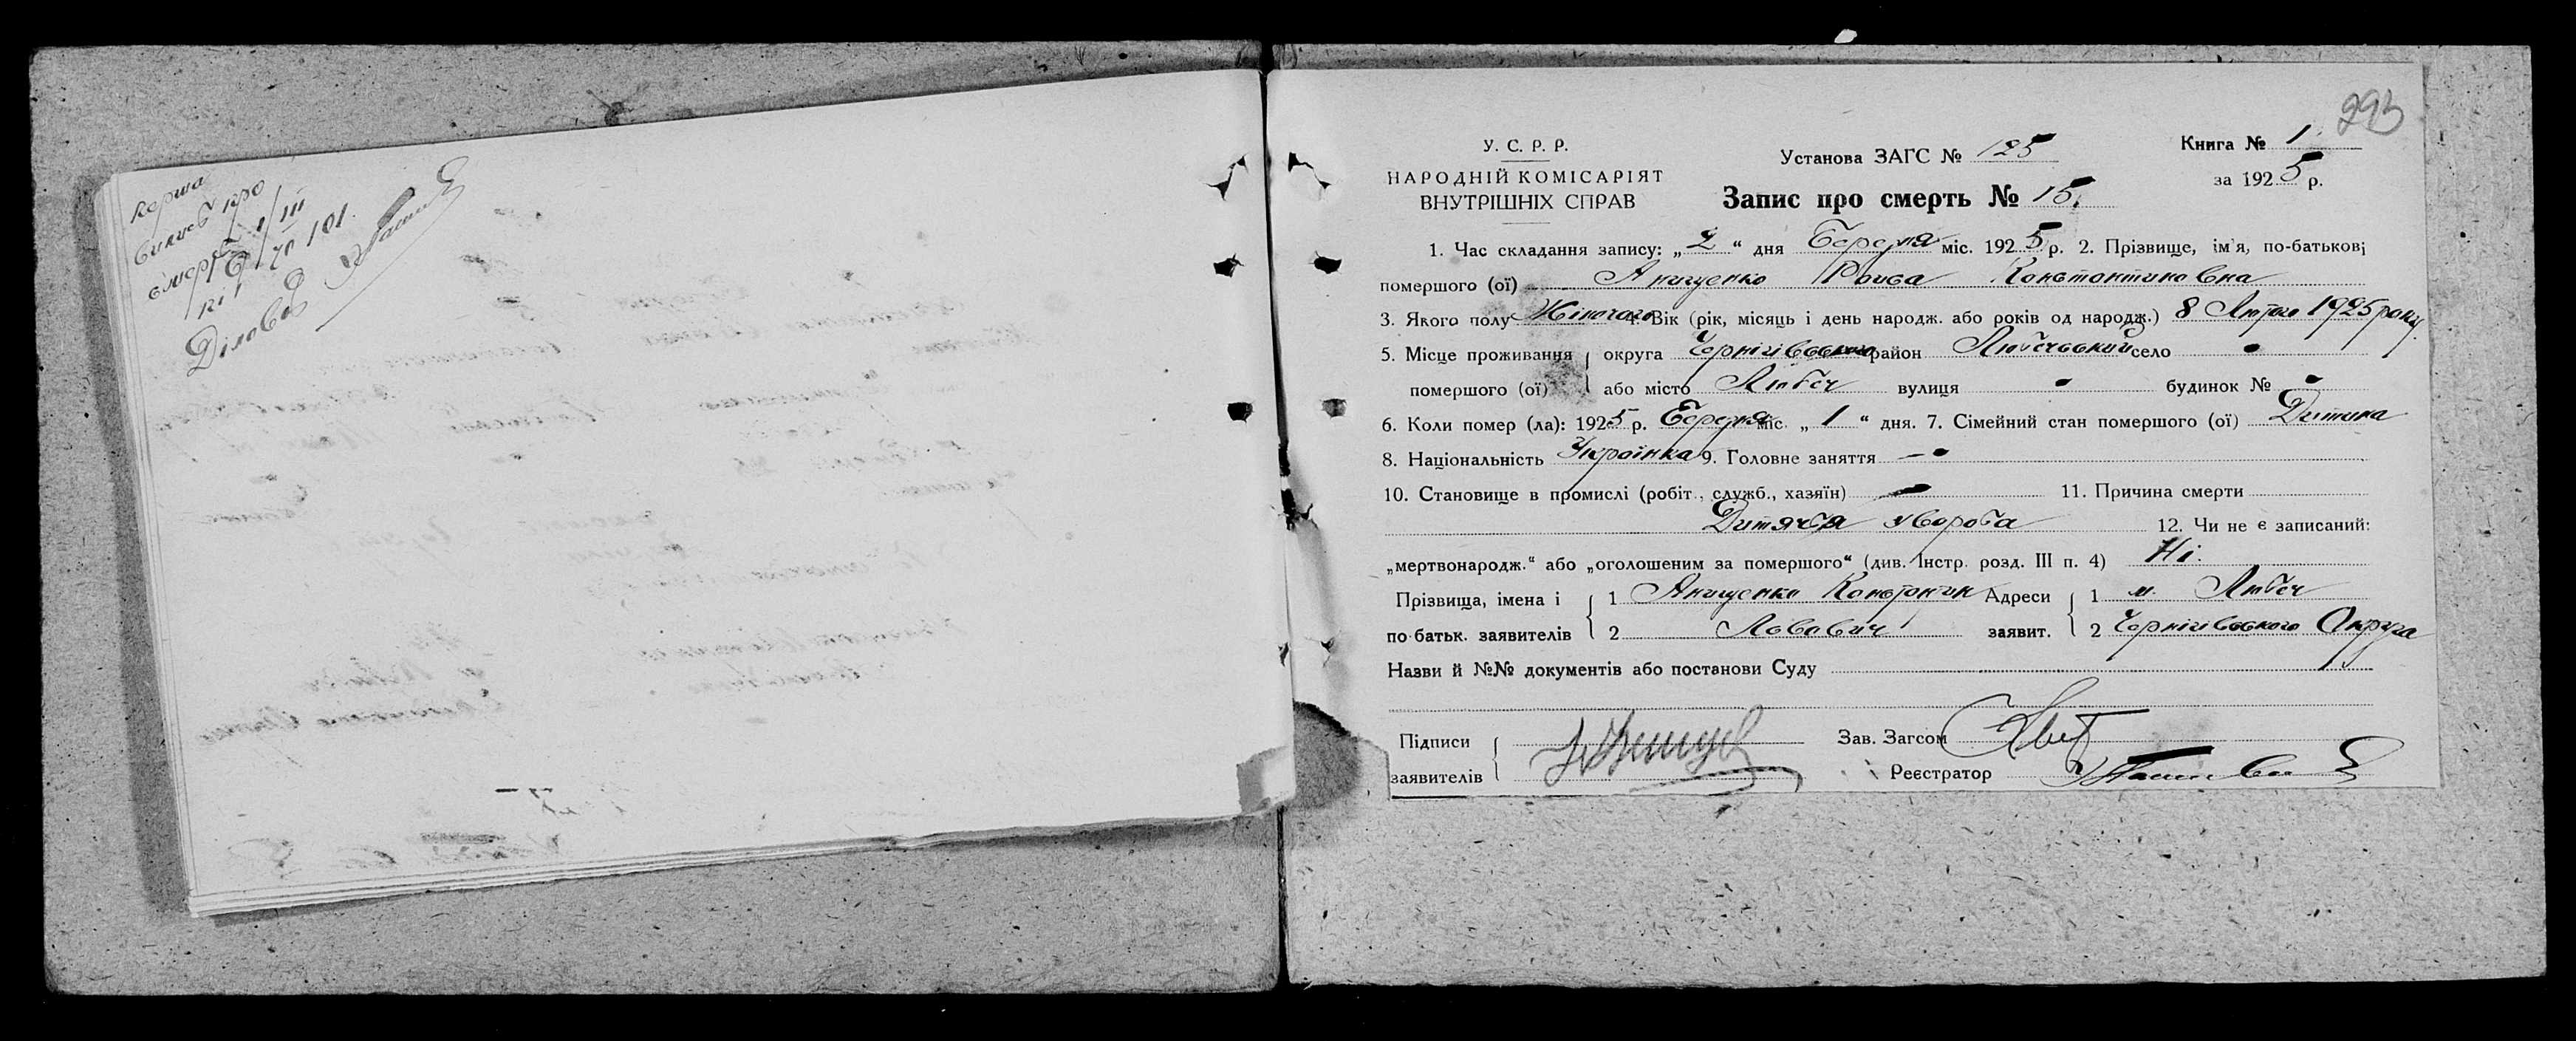 Перша
виписъ про
смерть 1/III
Діловод
293
У. С. Р. Р.
НАРОДНІЙ КОМІСАРІЯТ
ВНУТРІШНІХ СПРАВ
Установа ЗАГС № 125
Книга № 1
за 1925 р.
Запис про смерть № 15.
1. Час складання запису: „2“ дня Березня міс. 1925 р. 2. Прізвище, ім'я, по-батькові
помершого (ої) Анищенко Раиса Константиновна
3. Якого полу Жіночого 4. Вік (рік, місяць і день народж. або років од народж.) 8 Лютого 1925 року
5. Місце проживання округа Чернігівського район Любечський село
помершого (ої) або місто Любеч вулиця будинок №
6. Коли помер (ла): 1925 р. Березня міс. „1“ дня. 7. Сімейний стан помершого (ої) Дитина
8. Національність Українка 9. Головне заняття —
10. Становище в промислі (робіт., служб., хазяїн) — 11. Причина смерти
Дитяча хвороба 12. Чи не є записаний:
„мертвонародж.“ або „оголошеним за помершого“ (див. Інстр. розд. III п. 4) Ні.
Прізвища, імена і 1 Анищенко Константин Адреси 1 м. Любеч
по батьк. заявителів 2 Львович заявит. 2 Чернігівського Округа
Назви й №№ документів або постанови Суду
Підписи Зав. Загсом
заявителів Реєстратор